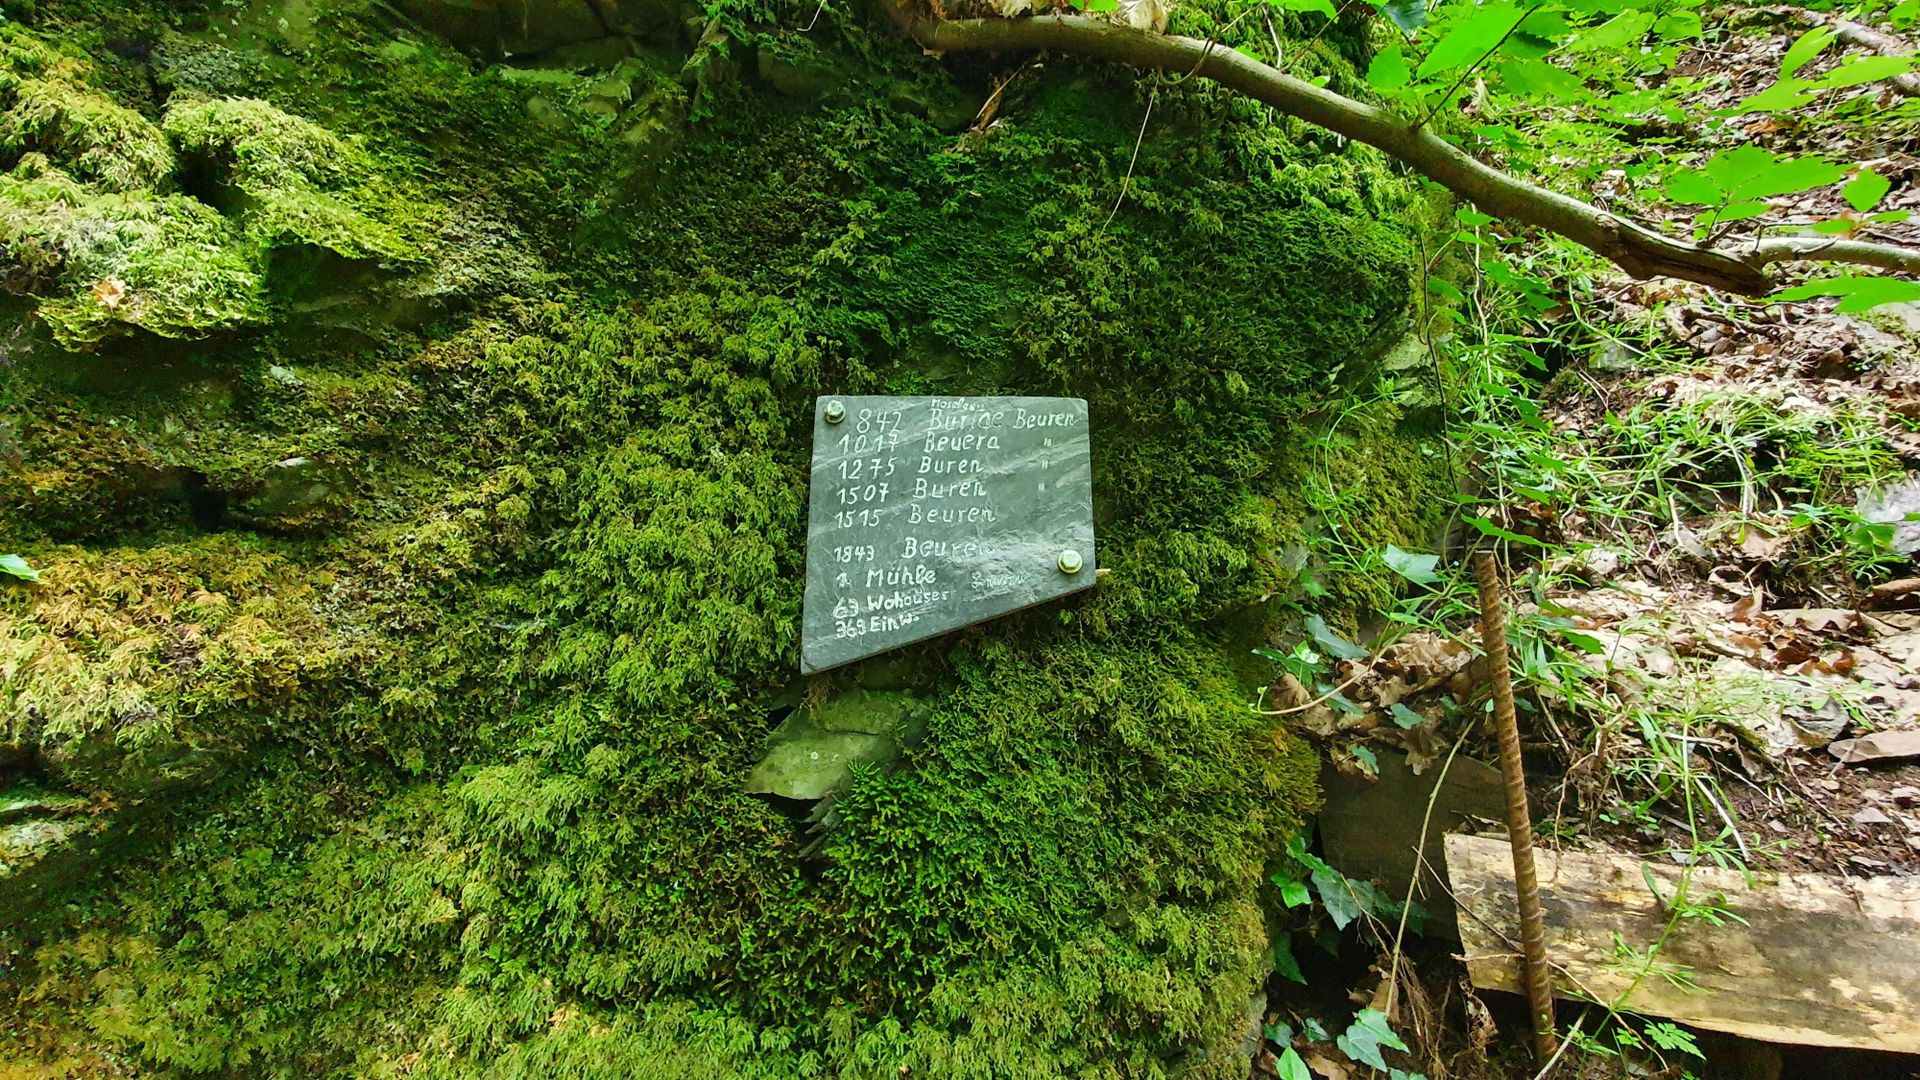 842 Buriae Beuren
1017 Beuera "
1275 Buren "
1507 Buren "
1515 Beuren
1843 Beuren
1. Mühle
69 Wohäuser
369 Einw.